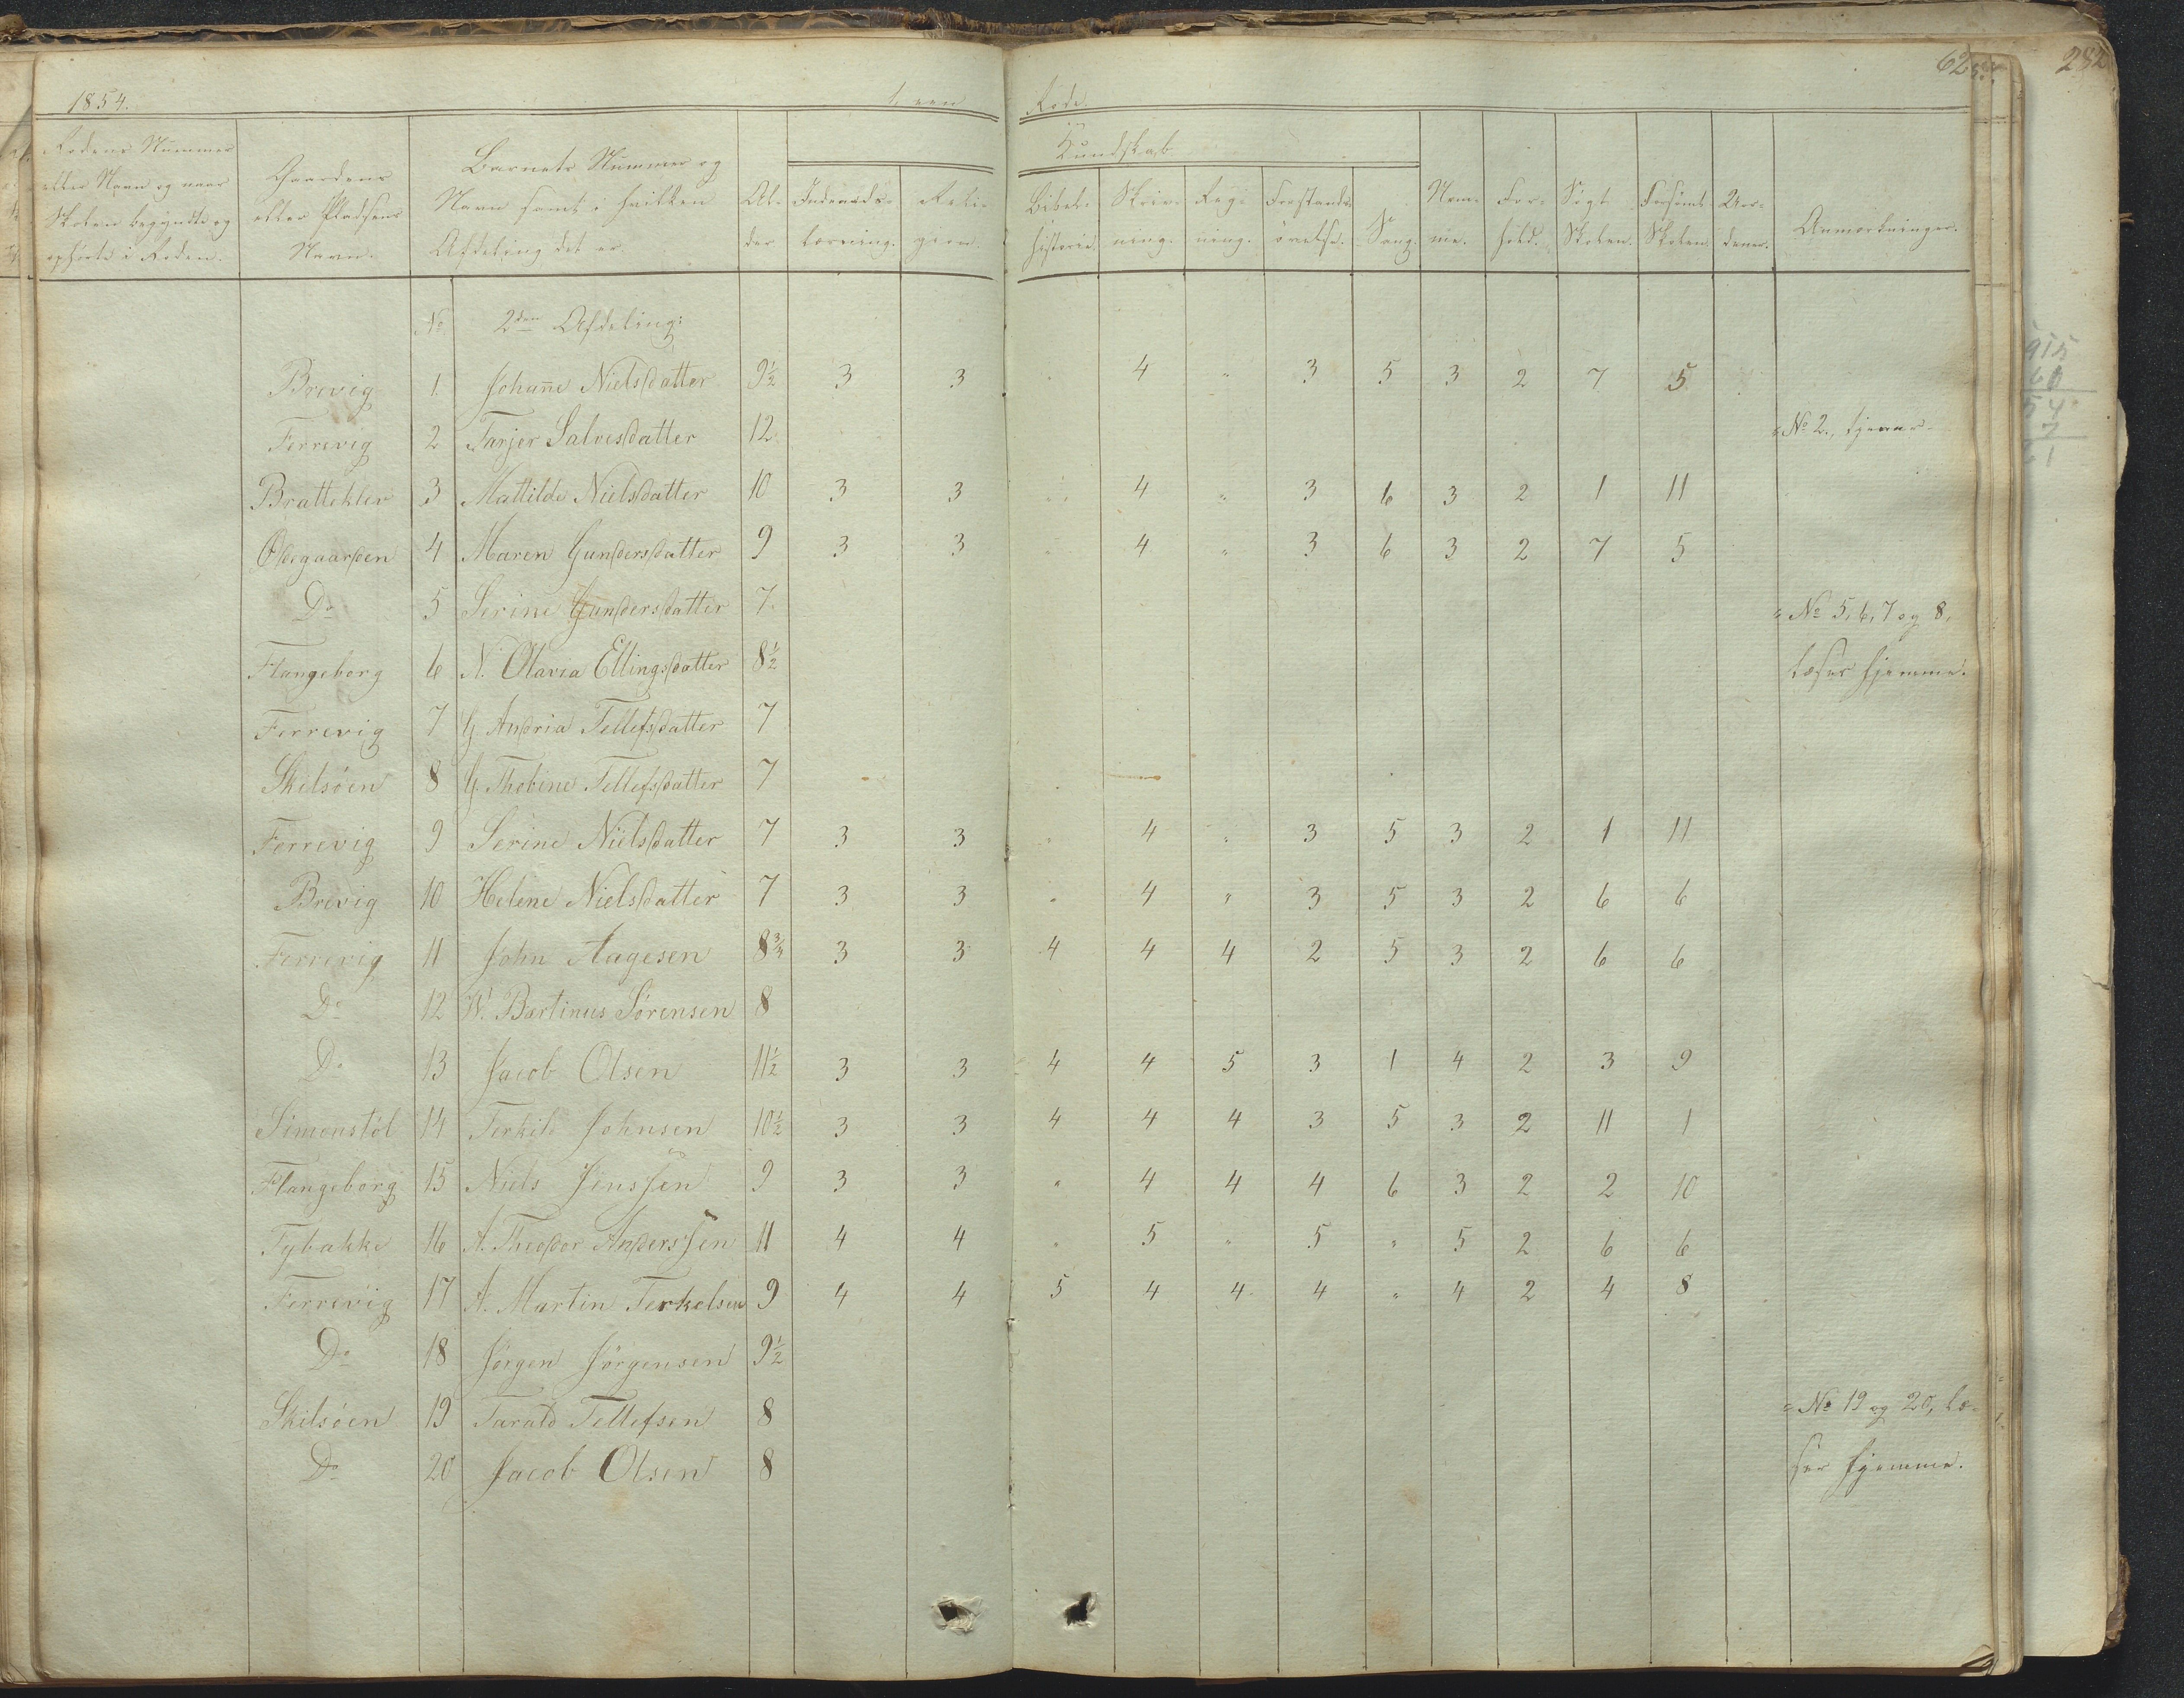 62
282
1854. Rode.
Kundskab
Rodens Nummer eller Navn og naar Skolen begyndte og ophørte i Roden. | Gaardens eller Pladsens Navn. | Barnets Nummer og Navn samt i hvilken Afdeling det er | Al- der | Indenads- læsning. | Reli- gion. | Bibel- historie. | Skriv- ning. | Reg- ning. | Forstands- øvelse. | Sang. | Nem- me. | For- hold. | Søgt Skolen. | Forsømt Skolen. | | Anmærkninger.
No 2den Afdeling:
Brevig 1. Johanne Nielsdatter 9½ 3 3 " 4 " 3 5 3 2 7 5
Ferrevig 2 Tarjer Salvesdatter 12 No 2, tjener.
Brattekley 3 Mattilde Nielsdatter 10 3 3 " 4 " 3 6 3 2 1 11
Ødegaarden 4 Maren Gundersdatter 9 3 3 " 4 " 3 6 3 2 7 5
Do 5 Serine Gundersdatter 7 No 5, 6, 7 og 8,
Flangeborg 6 N. Olavia Ellingsdatter 8½ læser hjemme.
Ferrevig 7 G. Andria Tellefsdatter 7
Skilsöen 8 G. Thobine Tellefsdatter 7
Ferrevig 9 Serine Nielsdatter 7 3 3 " 4 " 3 5 3 2 1 11
Brevig 10 Helene Nielsdatter 7 3 3 " 4 " 3 5 3 2 6 6
Ferrevig 11 John Aagesen 8¾ 3 3 4 4 4 2 5 3 2 6 6
Do 12 W. Bertinus Sörensen 8
Do 13 Jacob Olsen 11½ 3 3 4 4 5 3 1 4 2 3 9
Simonstöl 14 Terkil Johnsen 10½ 3 3 4 4 4 3 5 3 2 11 1
Flangeborg 15 Niels Jenssen 9 3 3 " 4 4 4 6 3 2 2 10
Tybakke 16 A. Theodor Anderssen 11 4 4 " 5 " 5 " 5 2 6 6
Ferrevig 17 A. Martin Terkelsen 9 4 4 5 4 4 4 " 4 2 4 8
Do 18 Jörgen Jörgensen 9½
Skilsöen 19 Tarald Tellefsen 8 No 19 og 20, læ-
Do 20 Jacob Olsen 8 ser hjemme.